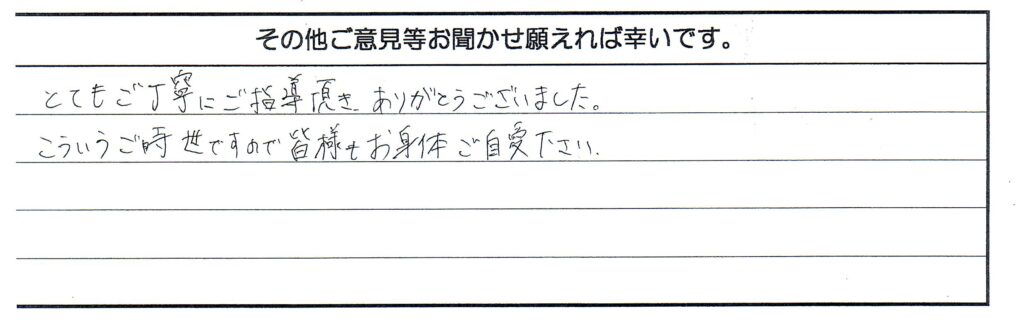 その他ご意見等お聞かせ願えれば幸いです。
とてもご丁寧にご指導頂き、ありがとうございました。
こういうご時世ですので皆様もお身体ご自愛下さい。